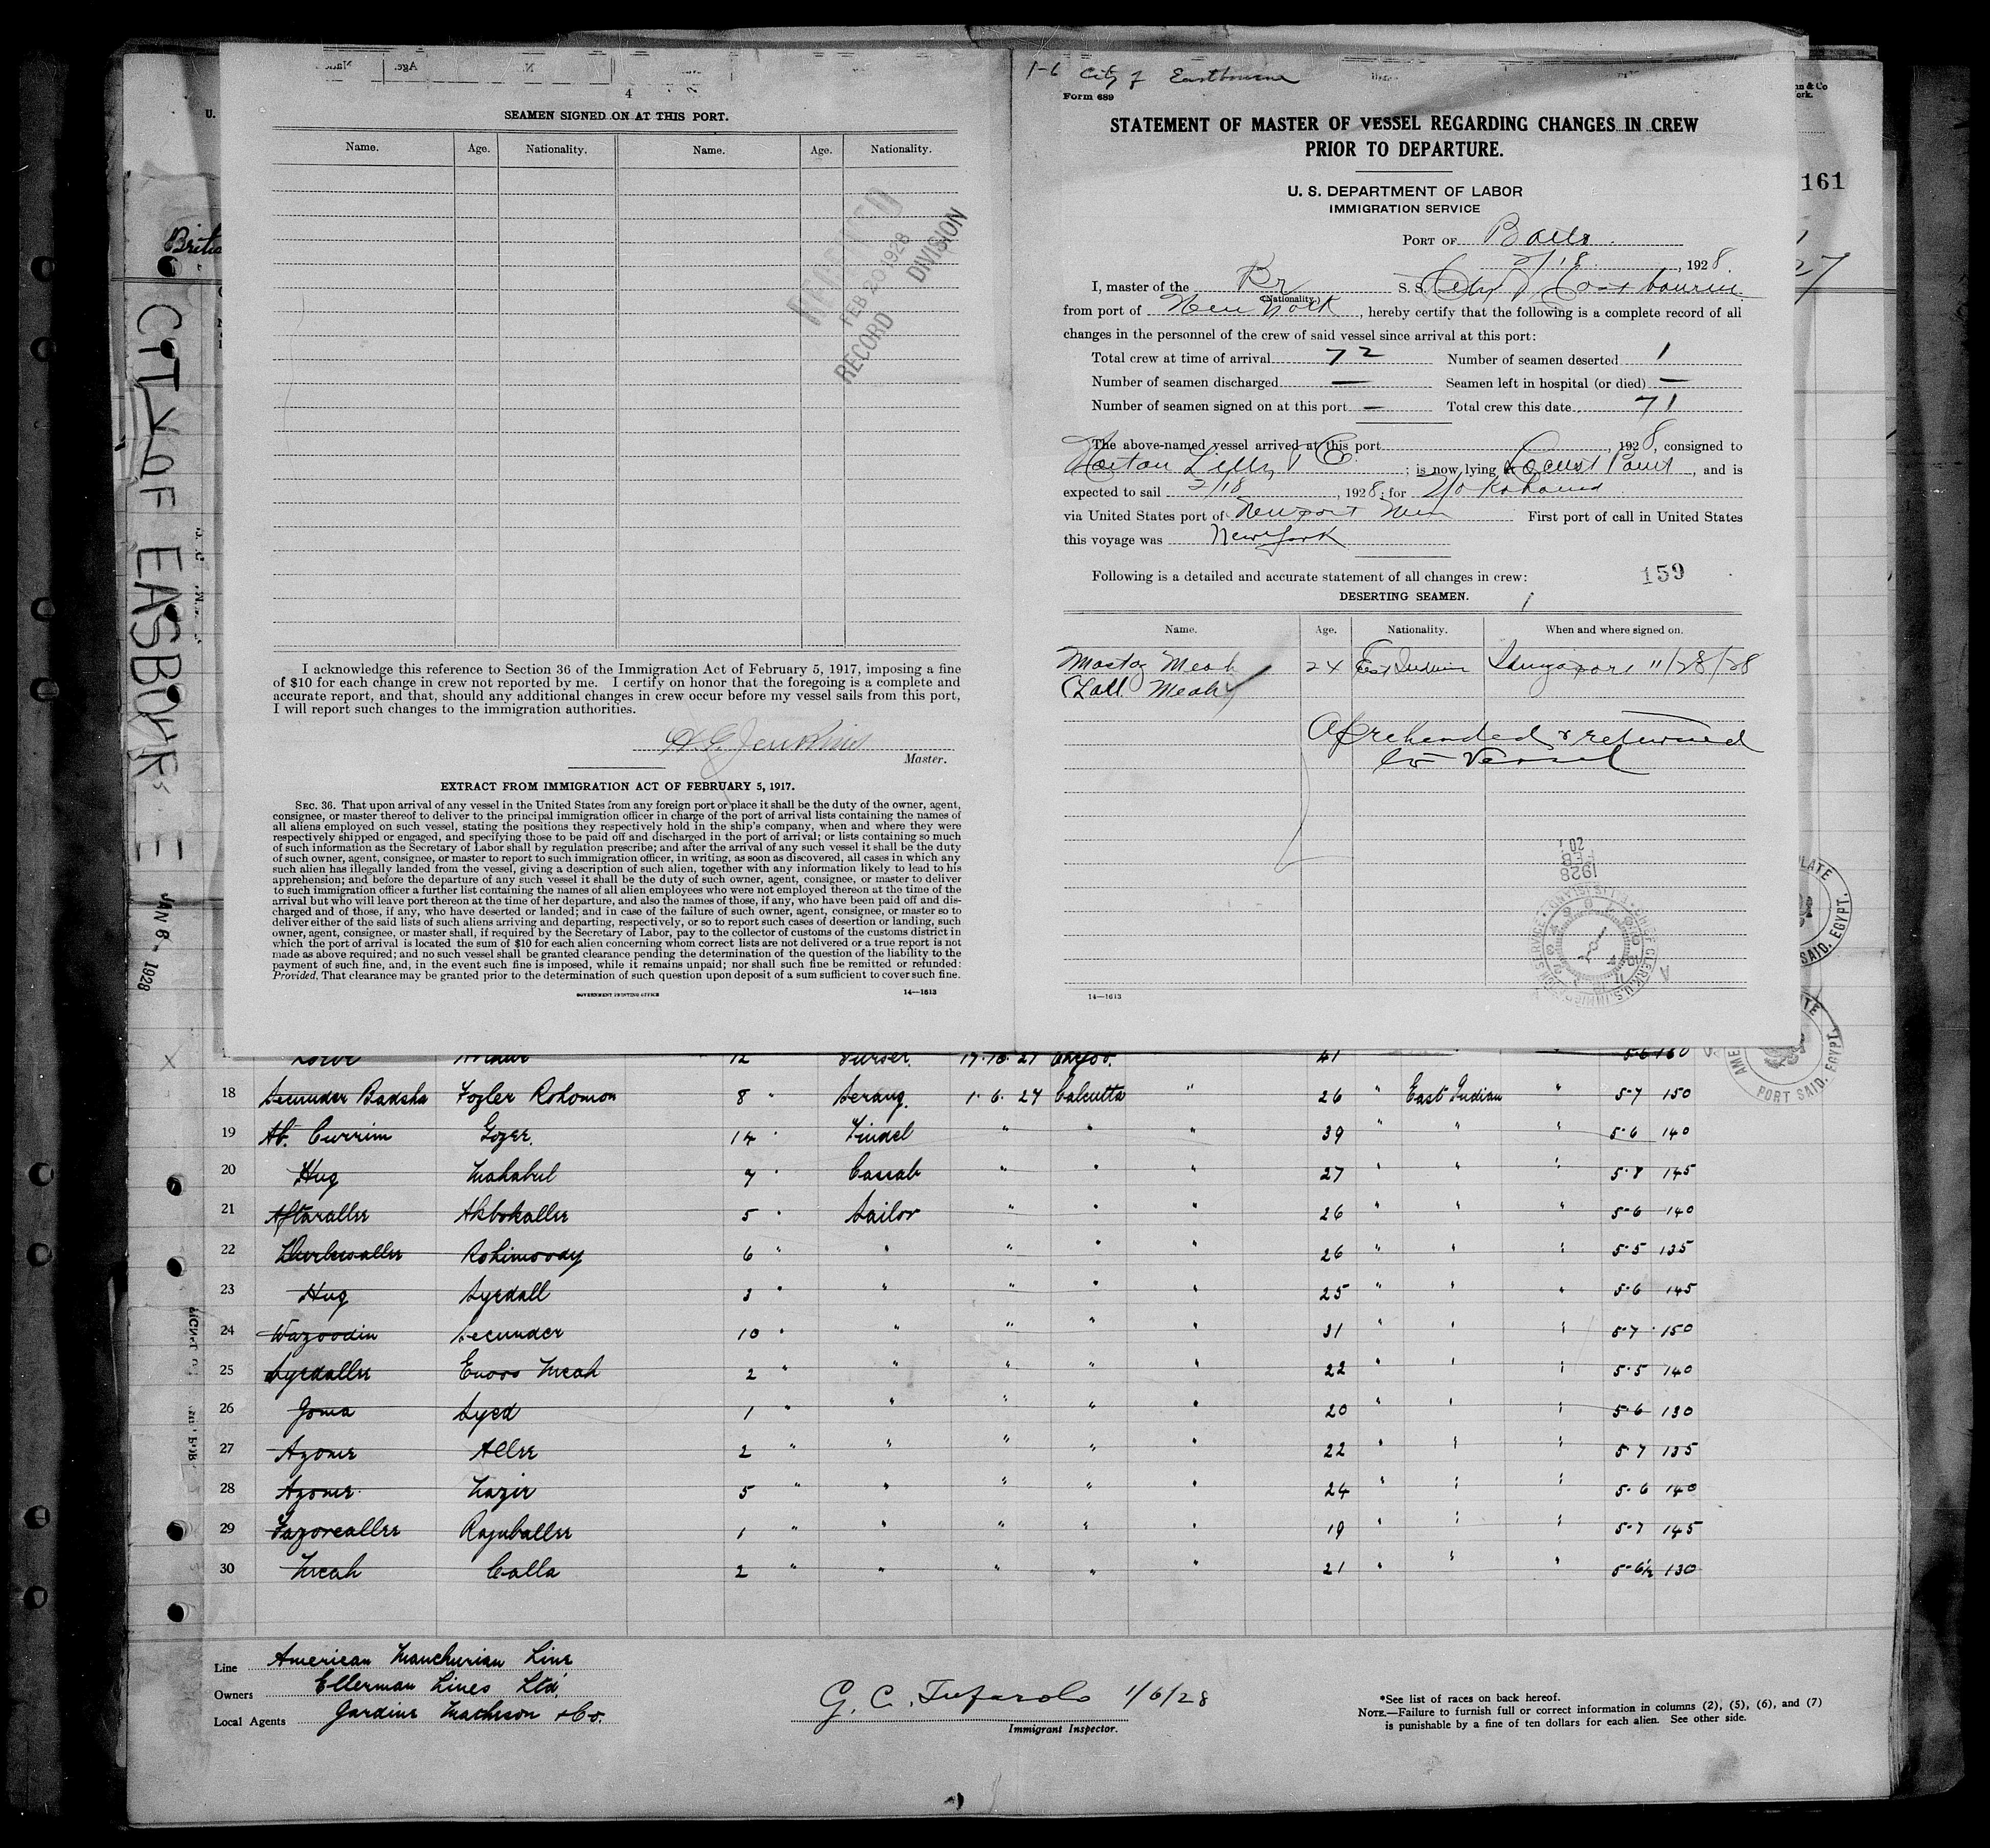 4
SEAMEN SIGNED ON AT THIS PORT.
Name. Age. Nationality. Name. Age. Nationality.
FEB 20 1928
RECORD DIVISION
I acknowledge this reference to Section 36 of the Immigration Act of February 5, 1917, imposing a fine
of $10 for each change in crew not reported by me. I certify on honor that the foregoing is a complete and
accurate report, and that, should any additional changes in crew occur before my vessel sails from this port,
I will report such changes to the immigration authorities.
Jenkins
Master.
EXTRACT FROM IMMIGRATION ACT OF FEBRUARY 5, 1917.
SEC. 36. That upon arrival of any vessel in the United States from any foreign port or place it shall be the duty of the owner, agent,
consignee, or master thereof to deliver to the principal immigration officer in charge of the port of arrival lists containing the names of
all aliens employed on such vessel, stating the positions they respectively hold in the ship's company, when and where they were
respectively shipped or engaged, and specifying those to be paid off and discharged in the port of arrival; or lists containing so much
of such information as the Secretary of Labor shall by regulation prescribe; and after the arrival of any such vessel it shall be the duty
of such owner, agent, consignee, or master to report to such immigration officer, in writing, as soon as discovered, all cases in which any
such alien has illegally landed from the vessel, giving a description of such alien, together with any information likely to lead to his
apprehension; and before the departure of any such vessel it shall be the duty of such owner, agent, consignee, or master to deliver
to such immigration officer a further list containing the names of all alien employees who were not employed thereon at the time of the
arrival but who will leave port thereon at the time of her departure, and also the names of those, if any, who have been paid off and dis-
charged and of those, if any, who have deserted or landed; and in case of the failure of such owner, agent, consignee, or master so to
deliver either of the said lists of such aliens arriving and departing, respectively, or so to report such cases of desertion or landing, such
owner, agent, consignee, or master shall, if required by the Secretary of Labor, pay to the collector of customs of the customs district in
which the port of arrival is located the sum of $10 for each alien concerning whom correct lists are not delivered or a true report is not
made as above required; and no such vessel shall be granted clearance pending the determination of the question of the liability to the
payment of such fine, and, in the event such fine is imposed, while it remains unpaid; nor shall such fine be remitted or refunded:
Provided, That clearance may be granted prior to the determination of such question upon deposit of a sum sufficient to cover such fine.
GOVERNMENT PRINTING OFFICE 14—1613
1-6 City of Eastbourne
Form 689
STATEMENT OF MASTER OF VESSEL REGARDING CHANGES IN CREW
PRIOR TO DEPARTURE.
U. S. DEPARTMENT OF LABOR
IMMIGRATION SERVICE
PORT OF Balto.
2/18, 1928.
I, master of the Br S. S. City of Eastbourne
(Nationality.)
from port of New York, hereby certify that the following is a complete record of all
changes in the personnel of the crew of said vessel since arrival at this port:
Total crew at time of arrival 72 Number of seamen deserted 1
Number of seamen discharged — Seamen left in hospital (or died) —
Number of seamen signed on at this port — Total crew this date 71
The above-named vessel arrived at this port, 1928, consigned to
Norton Lilly & Co.; is now lying at Locust Point, and is
expected to sail 2/18, 1928; for Yokohama
via United States port of Newport News First port of call in United States
this voyage was New York
Following is a detailed and accurate statement of all changes in crew: 159
DESERTING SEAMEN. 1
Name. Age. Nationality. When and where signed on.
Meah 24 East Indian Singapore 11/28/28
Meah
Aprehended & returned
to Vessel
FEB 20 1928
14—1613
161
27
Britis
CITY OF EASBOURNE
JAN 6 - 1928
PORT SAID, EGYPT.
12 Purser 41 5-6 160
18 Secunder Badsha Fozler Rohomon 8 " Serang. 1. 6. 27 Calcutta " 26 " East Indian " 5-7 150
19 Ab. Currim Gozer. 14 " Tindel " " " 39 " " " 5-6 140
20 Huq Mahabul 7 " Cassab " " " 27 " " " 5-8 145
21 Aftarallee Akbokallee 5 " Sailor " " " 26 " " " 5-6 140
22 Rohimoody 6 " " " " " 26 " " " 5-5 135
23 Huq Syedall 3 " " " " " 25 " " " 5-6 145
24 Wazoodin Secunder 10 " " " " " 31 " " " 5-7 150
25 Syedallee Enoos Meah 2 " " " " " 22 " " " 5-5 140
26 Goma Syed 1 " " " " " 20 " " " 5-6 130
27 Azome Allee 2 " " " " " 22 " " " 5-7 135
28 Azome Nazir 5 " " " " " 24 " " " 5-6 140
29 Fazoreallee Rajuballee 1 " " " " " 19 " " " 5-7 145
30 Meah Calla 2 " " " " " 21 " " " 5-6½ 130
Line American Manchurian Line
Owners Ellerman Lines Ltd.
Local Agents Jardine Matheson & Co.
G. C. Tufarolo 1/6/28
Immigrant Inspector.
*See list of races on back hereof.
NOTE.—Failure to furnish full or correct information in columns (2), (5), (6), and (7)
is punishable by a fine of ten dollars for each alien. See other side.